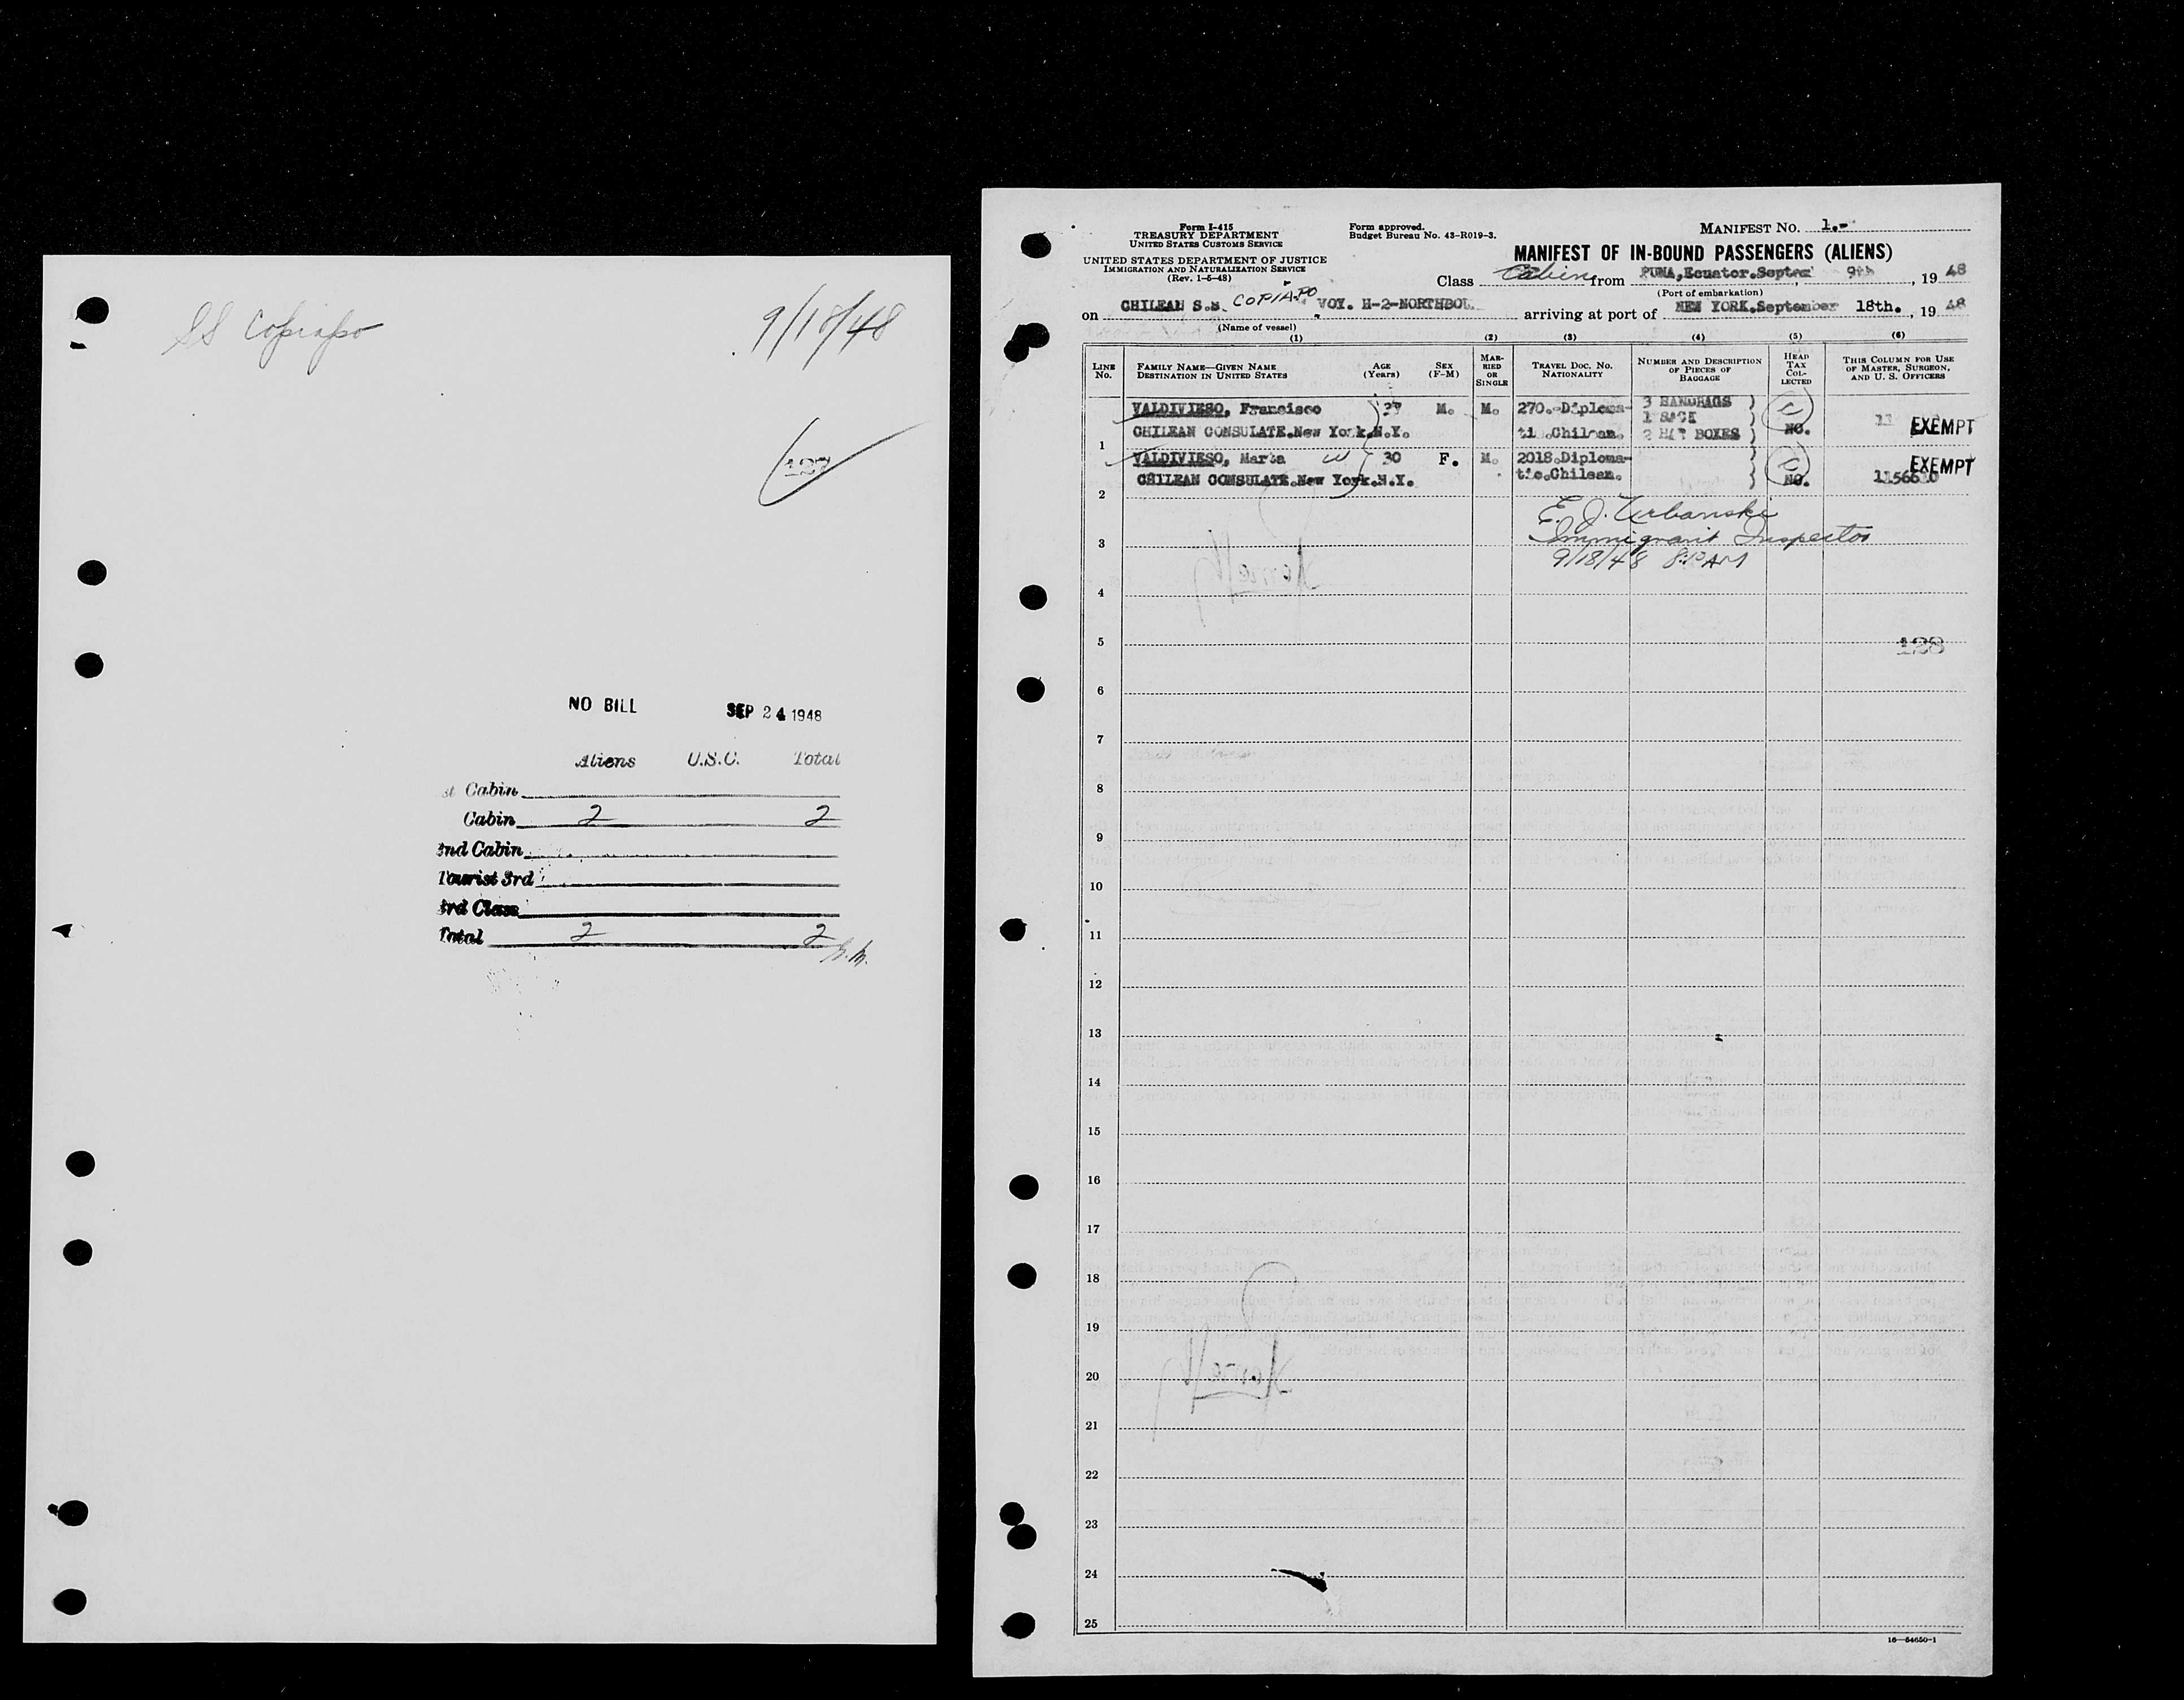 SS Copiapo
9/18/48
127
NO BILL SEP 24 1948
Aliens U.S.C. Total
st Cabin
Cabin 2 2
2nd Cabin
Tourist 3rd
3rd Class
Total 2 2
Form I-415
TREASURY DEPARTMENT
UNITED STATES CUSTOMS SERVICE
UNITED STATES DEPARTMENT OF JUSTICE
IMMIGRATION AND NATURALIZATION SERVICE
(Rev. 1-5-48)
Form approved.
Budget Bureau No. 43-R019-3.
MANIFEST No. 1.-
MANIFEST OF IN-BOUND PASSENGERS (ALIENS)
Class Cabin from PUNA, Ecuator. Septem 9th , 19 48
(Port of embarkation)
on CHILEAN S.S. COPIAPO VOY. H-2-NORTHBOU arriving at port of NEW YORK. September 18th. , 19 48
(Name of vessel)
(1) (2) (3) (4) (5) (6)
LINE No.
FAMILY NAME—GIVEN NAME
DESTINATION IN UNITED STATES
AGE (Years)
SEX (F-M)
MARRIED OR SINGLE
TRAVEL DOC. NO.
NATIONALITY
NUMBER AND DESCRIPTION OF PIECES OF BAGGAGE
HEAD TAX COLLECTED
THIS COLUMN FOR USE OF MASTER, SURGEON, AND U. S. OFFICERS
VALDIVIESO, Francisco M. M. 270.-Diploma- 3 HANDBAGS )
1 SACK )
1 CHILEAN CONSULATE. New York, N.Y. tic.Chilean. 2 HAT BOXES ) NO. EXEMPT
VALDIVIESO, Marta w 30 F. M. 2018.Diploma- ) EXEMPT
2 CHILEAN CONSULATE. New York. N.Y. tic.Chilean. ) NO.
E. J. Urbanski
Immigrant Inspector
9/18/48 8:10 AM
3
4
5 128
6
7
8
9
10
11
12
13
14
15
16
17
18
19
20
21
22
23
24
25
16—54650-1